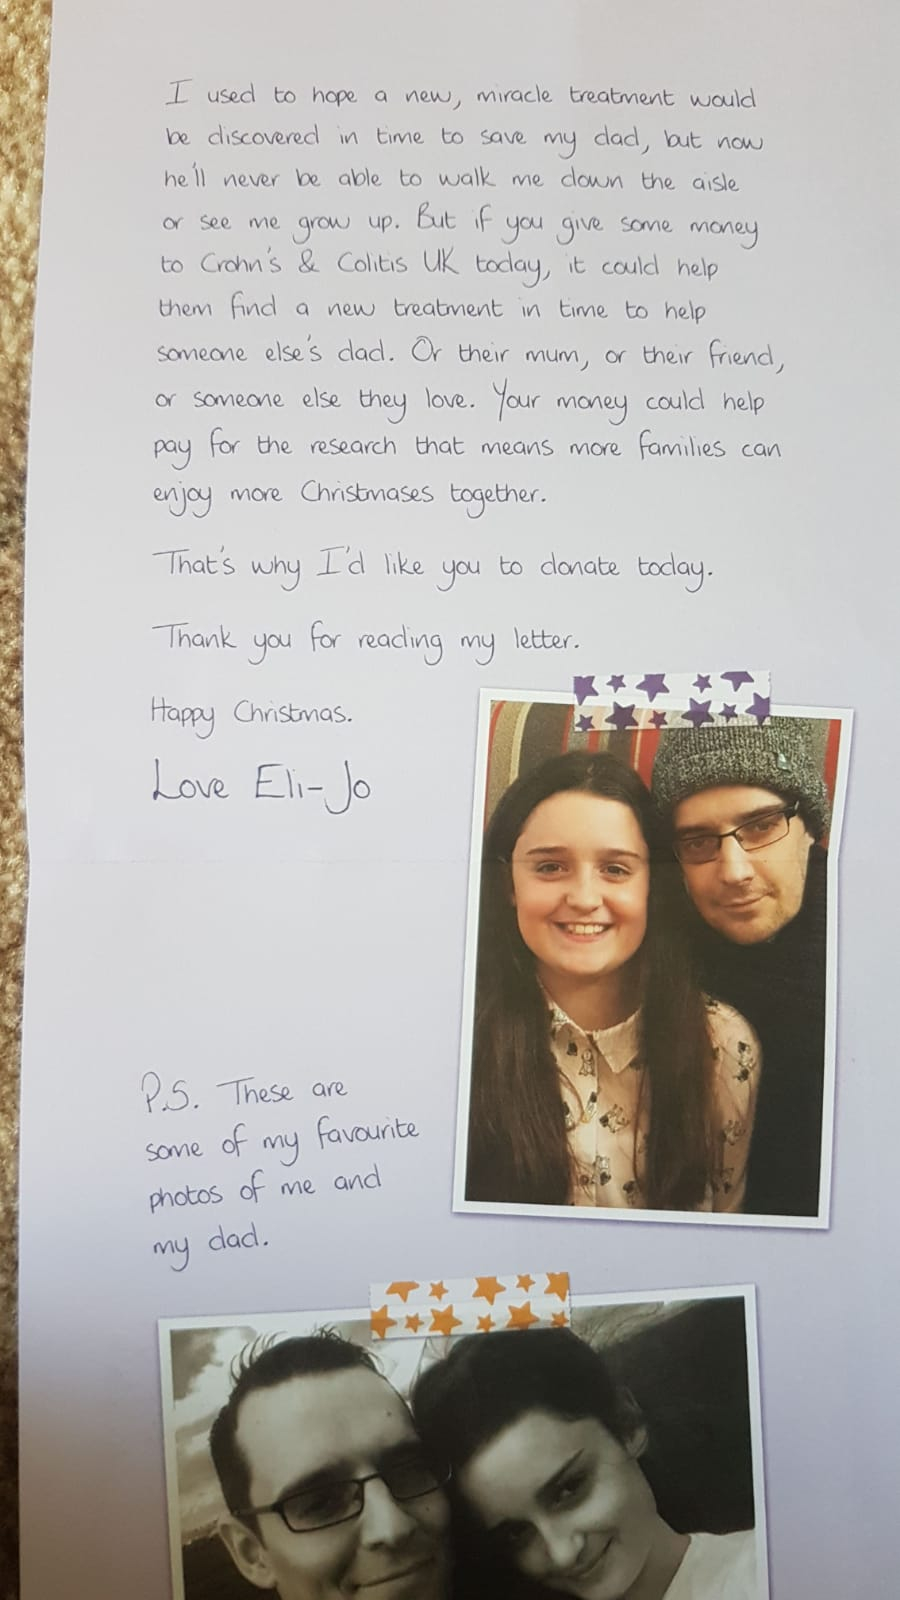 I used to hope a new, miracle treatment would
be discovered in time to save my dad, but now
he'll never be able to walk me down the aisle
or see me grow up. But if you give some money
to Crohn's & Colitis UK today, it could help
them find a new treatment in time to help
someone else's dad. Or their mum, or their friend,
or someone else they love. Your money could help
pay for the research that means more families can
enjoy more Christmases together.
That's why I'd like you to donate today.
Thank you for reading my letter.
Happy Christmas.
Love Eli-Jo
P.S. These are
some of my favourite
photos of me and
my dad.